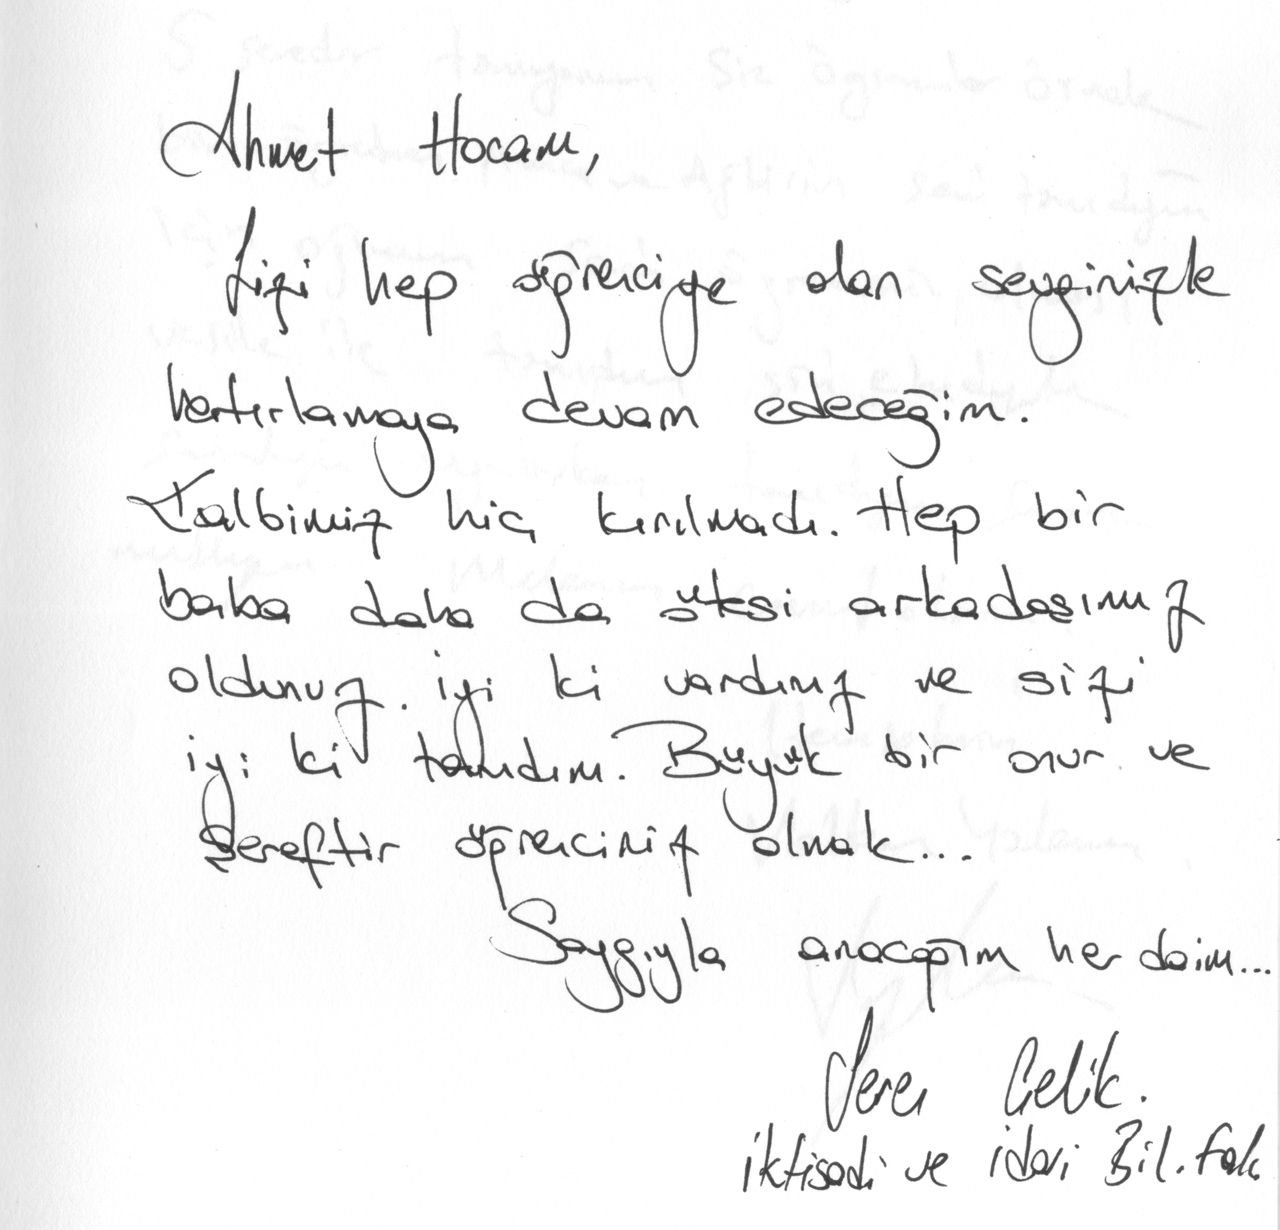 Ahmet Hocam,
Sizi hep öğrenciye olan sevginizle
hatırlamaya devam edeceğim.
Kalbimiz hiç kırılmadı. Hep bir
baba daha da ötesi arkadaşımız
oldunuz. iyi ki vardınız ve sizi
iyi ki tanıdım. Büyük bir onur ve
şereftir öğrenciniz olmak...
Saygıyla anacağım her daim...
Çelik.
iktisadi ve idari Bil. Fak.